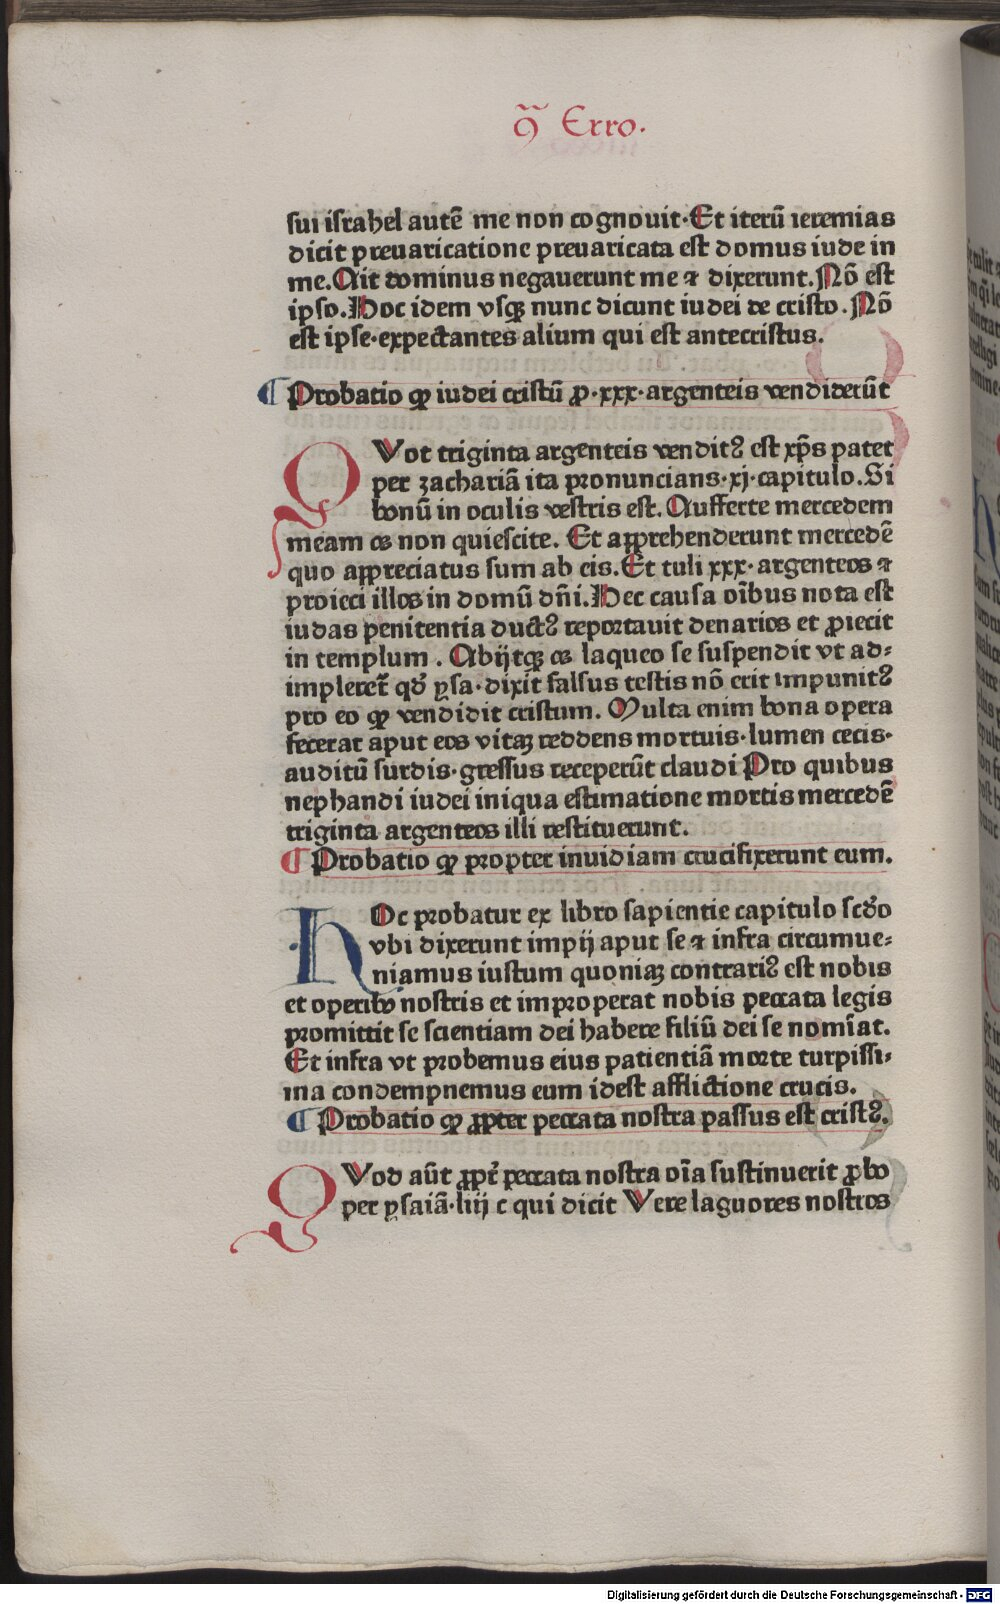 ꝯ̃ Erro.
sui israhel autē me non cognouit· Et iterū ieremias
dicit preuaricatione preuaricata est domus iude in
me. Ait dominus negauerunt me ⁊ dixerunt. Nō est
ipso. Hoc idem vsqꝫ nunc dicunt iudei de cristo. Nō
est ipse· expectantes alium qui est antecristus.
¶ Probatio ꝙ iudei cristū ꝓ· xxx· argenteis vendiderūt
QVot triginta argenteis venditꝰ est xp̄s patet
per zachariā ita pronuncians· xj· capitulo. Si
bonū in oculis vestris est. Aufferte mercedem
meam os non quiescite. Et apprehenderunt mercedē
quo appreciatus sum ab eis. Et tuli xxx· argenteos ⁊
proieci illos in domū dn̄i. Hec causa oībus nota est
iudas penitentia ductꝰ reportauit denarios et ꝓiecit
in templum. Abijtqꝫ os laqueo se suspendit vt ad-
impleret̄ qd̄ ysa· dixit falsus testis nō erit impunitꝰ
pro eo ꝙ vendidit cristum. Multa enim bona opera
fecerat aput eos vitaꝫ reddens mortuis· lumen cecis·
auditū surdis· gressus receperūt claudi Pro quibus
nephandi iudei iniqua estimatione mortis mercedē
triginta argenteos illi restituerunt.
¶ Probatio ꝙ propter inuidiam crucifixerunt eum.
HOc probatur ex libro sapientie capitulo scd̄o
vbi dixerunt impij aput se ⁊ infra circumue-
niamus iustum quoniaꝫ contrariꝰ est nobis
et operibꝰ nostris et improperat nobis peccata legis
promittit se scientiam dei habere filiū dei se nomīat.
Et infra vt probemus eius patientiā morte turpissi-
ma condempnemus eum idest afflictione crucis.
¶ Probatio ꝙ ꝓpter peccata nostra passus est cristꝰ.
QVod aūt ꝓpt̄ peccata nostra oīa sustinuerit ꝓbo
per ysaiā· liij c qui dicit Vere laguores nostros
Digitalisierung gefördert durch die Deutsche Forschungsgemeinschaft - DFG